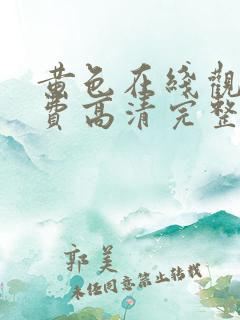 黄色在綫觀
費高清完整
郭美
未经同意禁止转载